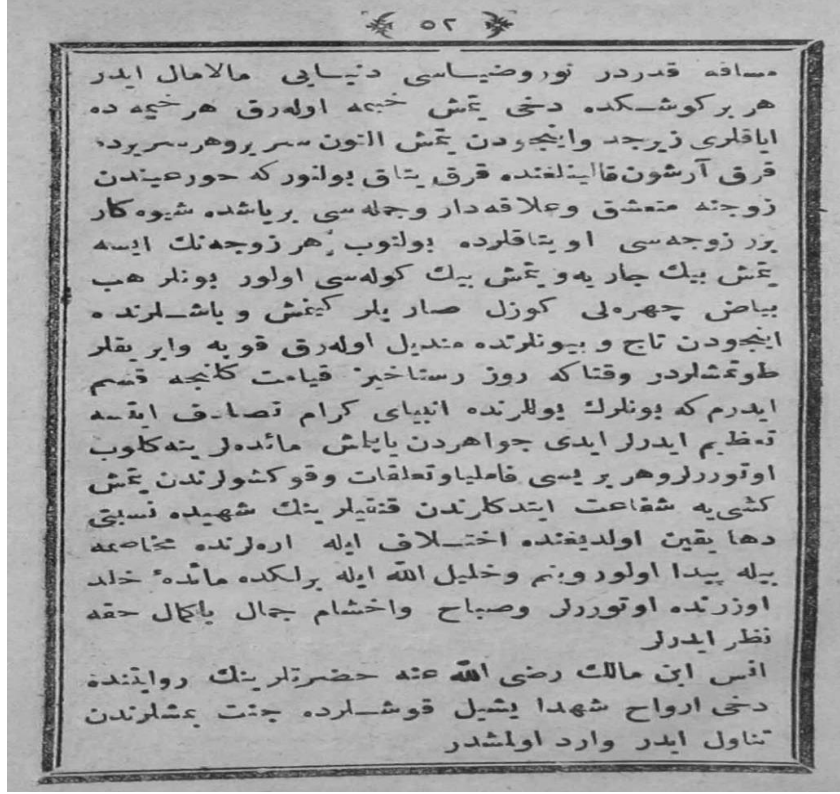 ٥٢
مسافه قدردر نور وضیاسی دنیایی مالامال ایدر
هر بر كوشكده دخی یتمش خیمه اوله‌رق هر خیمه ده
ایاقلری زبرجد واینجودن یتمش التون سریر وهر سریرده
قرق آرشون قالینلغنده قرق یتاق بولنور كه حورعیندن
زوجنه متعشق وعلاقه‌دار وجمله‌سی بر یاشده شیوه‌كار
برر زوجه‌سی او یتاقلرده بولنوب هر زوجه‌نك ایسه
یتمش بیك جاریه و یتمش بیك كوله‌سی اولور بونلر هب
بیاض چهره‌لی كوزل صاریلر كیمش و باشلرنده
اینجودن تاج و بیونلرنده مندیل اوله‌رق قوپه وابریقلر
طوتمشلردر وقتاكه روز رستاخیز قیامت كلنجه قسم
ایدرم كه بونلرك یوللرنده انبیای كرام تصادف ایتسه
تعظیم ایدرلر ایدی جواهردن یاپلمش مائده‌لرینه كلوب
اوتوررلر وهر بریسی فاملیا وتعلقات وقوكشولرندن یتمش
كشی‌یه شفاعت ایتدكلرندن قنقیلرینك شهیده نسبتی
دها یقین اولدیغنده اختلاف ایله ارەلرنده مخاصمه
بیله پیدا اولور وبنم وخلیل الله ایله برلكده مائدهٔ خلد
اوزرنده اوتوررلر وصباح واخشام جمال باكمال حقه
نظر ایدرلر
انس ابن مالك رضی الله عنه حضرتلرینك روایتنده
دخی ارواح شهدا یشیل قوشلرده جنت یمشلرندن
تناول ایدر وارد اولمشدر